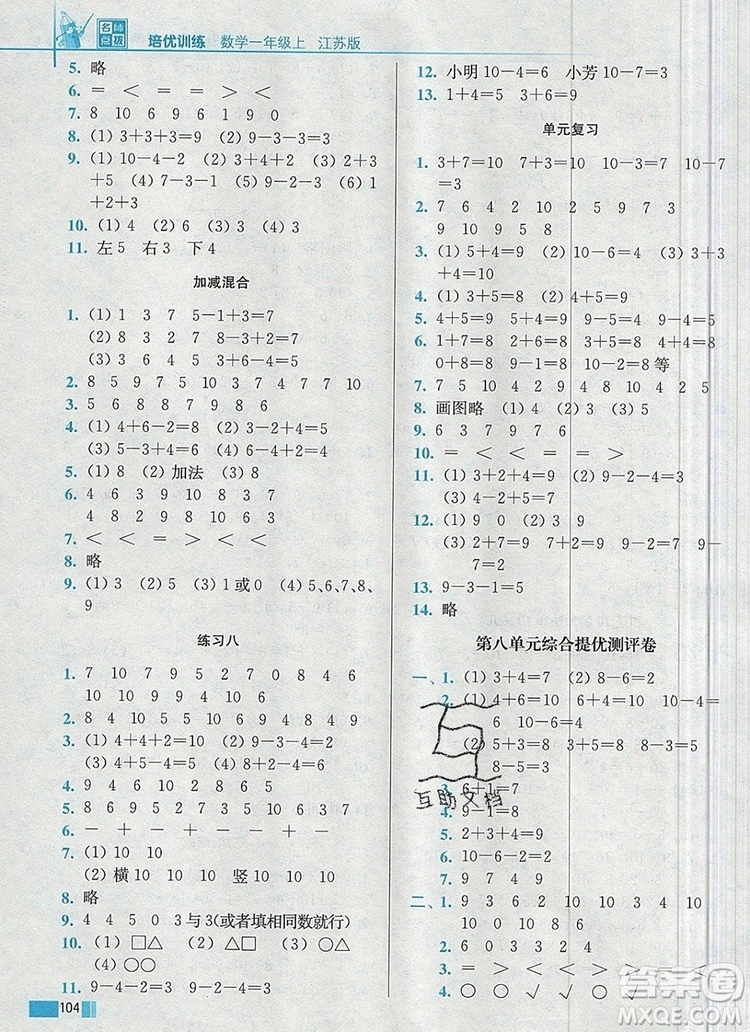 名师点拨 培优训练 数学一年级上 江苏版
5. 略
6. = < = = > <
7. 8 10 6 9 6 1 9 0
8. (1) 3+3+3=9 (2) 9-3-3=3
9. (1) 10-4-2 (2) 3+4+2 (3) 2+3
+5 (4) 7-2-5 (5) 9-2-3 (6) 1+
2+3+2
10. (1) 4 (2) 6 (3) 3 (4) 3
11. 左 5 右 3 下 4
加减混合
1. (1) 1 3 7 5-1+3=7
(2) 8 3 2 7 8-3+2=7
(3) 3 6 4 5 3+6-4=5
2. 8 5 9 7 5 10 3 7 4 7 7 10
3. 5 6 8 8 7 9 8 6
4. (1) 4+6-2=8 (2) 4-2+3=5
(3) 5-3+4=6 (4) 6-4+2=4
5. (1) 8 (2) 加法 (3) 2 (4) 8
6. 4 6 3 9 10 4 8 3
4 8 2 9 8 9 10 8
7. < < = > = <
8. 略
9. (1) 3 (2) 5 (3) 1或0 (4) 5、6、7、8、
9
练习八
1. 7 10 7 9 5 2 7 0 8 4 6
10 10 8 9 3 4 2
2. 8 8 3 4 9 6 10 8 4 8 4 9
3. (1) 4+4+2=10 (2) 9-4-3=2
(3) 4+5-4=5 (4) 8-4+3=7
4. 9 4 6 10 2 8 6 5
5. 8 6 9 5 2 7 5 3 9 4 8 10
6. - + - + - +
7. (1) 10 10
(2) 横10 10 10 竖10 10 10
8. 略
9. 4 4 5 0 3与3(或者填相同数就行)
10. (1) □△ (2) △□ (3) ○△
(4) ○○
11. 9-4-2=3 9-2-4=3
104
12. 小明 10-4=6 小芳 10-3=7
13. 1+4=5 3+6=9
单元复习
1. 3+7=10 7+3=10 10-3=7 10-7
=3
2. 7 6 4 2 10 2 5 9 7 3
9 10 9 5 8
3. (1) 5+4=9 (2) 10-6=4 (3) 6
+4=10
4. 10 7 8 9 10
5. 4+5=9 5+4=9 9-5=4 9-4=5
6. 1+7=8 2+6=8 3+5=8 4+4=8
0+8=8 9-1=8 10-2=8等
7. 7 5 10 4 2 9 4 8 10 8
8. 画图略 (1) 4 (2) 2 (3) 5
9. 6 3 7 9 7 6
10. = < = < > <
11. (1) 3+2+4=9 (2) 9-4-2=3
(3) 4-2+5=7
12. (1) 9 0 (2) 3 9
(3) 2+7=9 7+2=9 9-7=2 9-
7=2
13. 9-3-1=5
14. 略
第八单元综合提优测评卷
一、1. (1) 3+4=7 (2) 8-6=2
2. (1) 4+6=10 6+4=10 10-4=
6 10-6=4
(2) 5+3=8 3+5=8 8-3=5
8-5=3
3. 6+1=7
4. 9-1=8
5. 2+3+4=9
6. 10-6-2=2
7. 9 7 4 9
二、1. 9 3 6 2 10 1 8 9 8
2. 6 0 3 3 2 4
3. = > < > < >
4. ○ ○ √ √ √ ○
互助文档
答案圈
MXQE.COM